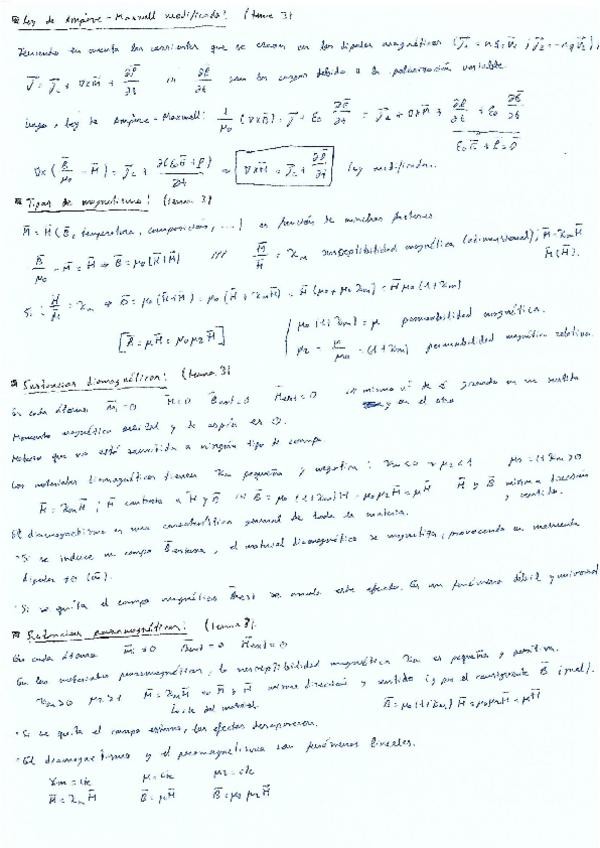 Ley de Ampère-Maxwell modificada: (tema 3)
Teniendo en cuenta las corrientes que se crean en los dipolos magnéticos
J⃗ = J⃗c + ∇×M⃗ + ∂P⃗/∂t /// ∂P⃗/∂t debido a la polarización variable.
Luego, Ley de Ampère-Maxwell: 1/μ0 (∇×B⃗) = J⃗ + ε0 ∂E⃗/∂t = J⃗c + ∇×M⃗ + ∂P⃗/∂t + ε0 ∂E⃗/∂t
ε0E⃗ + P⃗ = D⃗
∇×(B⃗/μ0 - M⃗) = J⃗c + ∂(ε0E⃗ + P⃗)/∂t ⇒ ∇×H⃗ = J⃗c + ∂D⃗/∂t Ley modificada.
Tipos de magnetismo: (tema 3)
M⃗ = M⃗(B⃗, temperatura, composición, ...) es función de muchos factores
B⃗/μ0 - M⃗ = H⃗ ⇒ B⃗ = μ0(H⃗+M⃗) /// M⃗/H⃗ = χm susceptibilidad magnética (adimensional); M⃗ = χmH⃗
M⃗(H⃗).
Si M⃗/H⃗ = χm ⇒ B⃗ = μ0(H⃗+M⃗) = μ0(H⃗ + χmH⃗) = H⃗(μ0 + μ0χm) = H⃗μ0(1+χm)
[B⃗ = μH⃗ = μ0μrH⃗]
μ0(1+χm) = μ permeabilidad magnética.
μr = μ/μ0 = (1+χm) permeabilidad magnética relativa.
Sustancias diamagnéticas: (tema 3)
En cada átomo m⃗ = 0 M⃗ = 0 B⃗ext = 0 H⃗ext = 0 mismo nº de e⁻ girando en un sentido
y en el otro
Momento magnético orbital y de espín es 0.
Materia que no está sometida a ningún tipo de campo.
Los materiales diamagnéticos tienen χm pequeña y negativa: χm<0 ⇒ μr<1 μr = 1+χm > 0
M⃗ = χmH⃗; M⃗ contrario a H⃗ y B⃗ /// B⃗ = μ0(1+χm)H⃗ = μ0μrH⃗ = μH⃗ H⃗ y B⃗ misma dirección
y sentido.
El diamagnetismo es una característica general de toda la materia.
·Si se induce un campo B⃗ externo, el material diamagnético se magnetiza, provocando un momento
dipolar ≠ 0 (m⃗).
·Si se quita el campo magnético B⃗ext se anula este efecto. Es un fenómeno débil y universal
Sustancias paramagnéticas: (tema 3).
En cada átomo m⃗ ≠ 0 B⃗ext = 0 H⃗ext = 0
En los materiales paramagnéticos, la susceptibilidad magnética χm es pequeña y positiva.
χm>0 μr>1 M⃗ = χmH⃗ ⇒ M⃗ y H⃗ misma dirección y sentido (y por el consiguiente B⃗ igual).
del material. B⃗ = μ0(1+χm)H⃗ = μ0μrH⃗ = μH⃗
·Si se quita el campo externo, los efectos desaparecen.
·El diamagnetismo y el paramagnetismo son fenómenos lineales.
χm = cte μ = cte μr = cte
M⃗ = χmH⃗ B⃗ = μH⃗ B⃗ = μ0μrH⃗